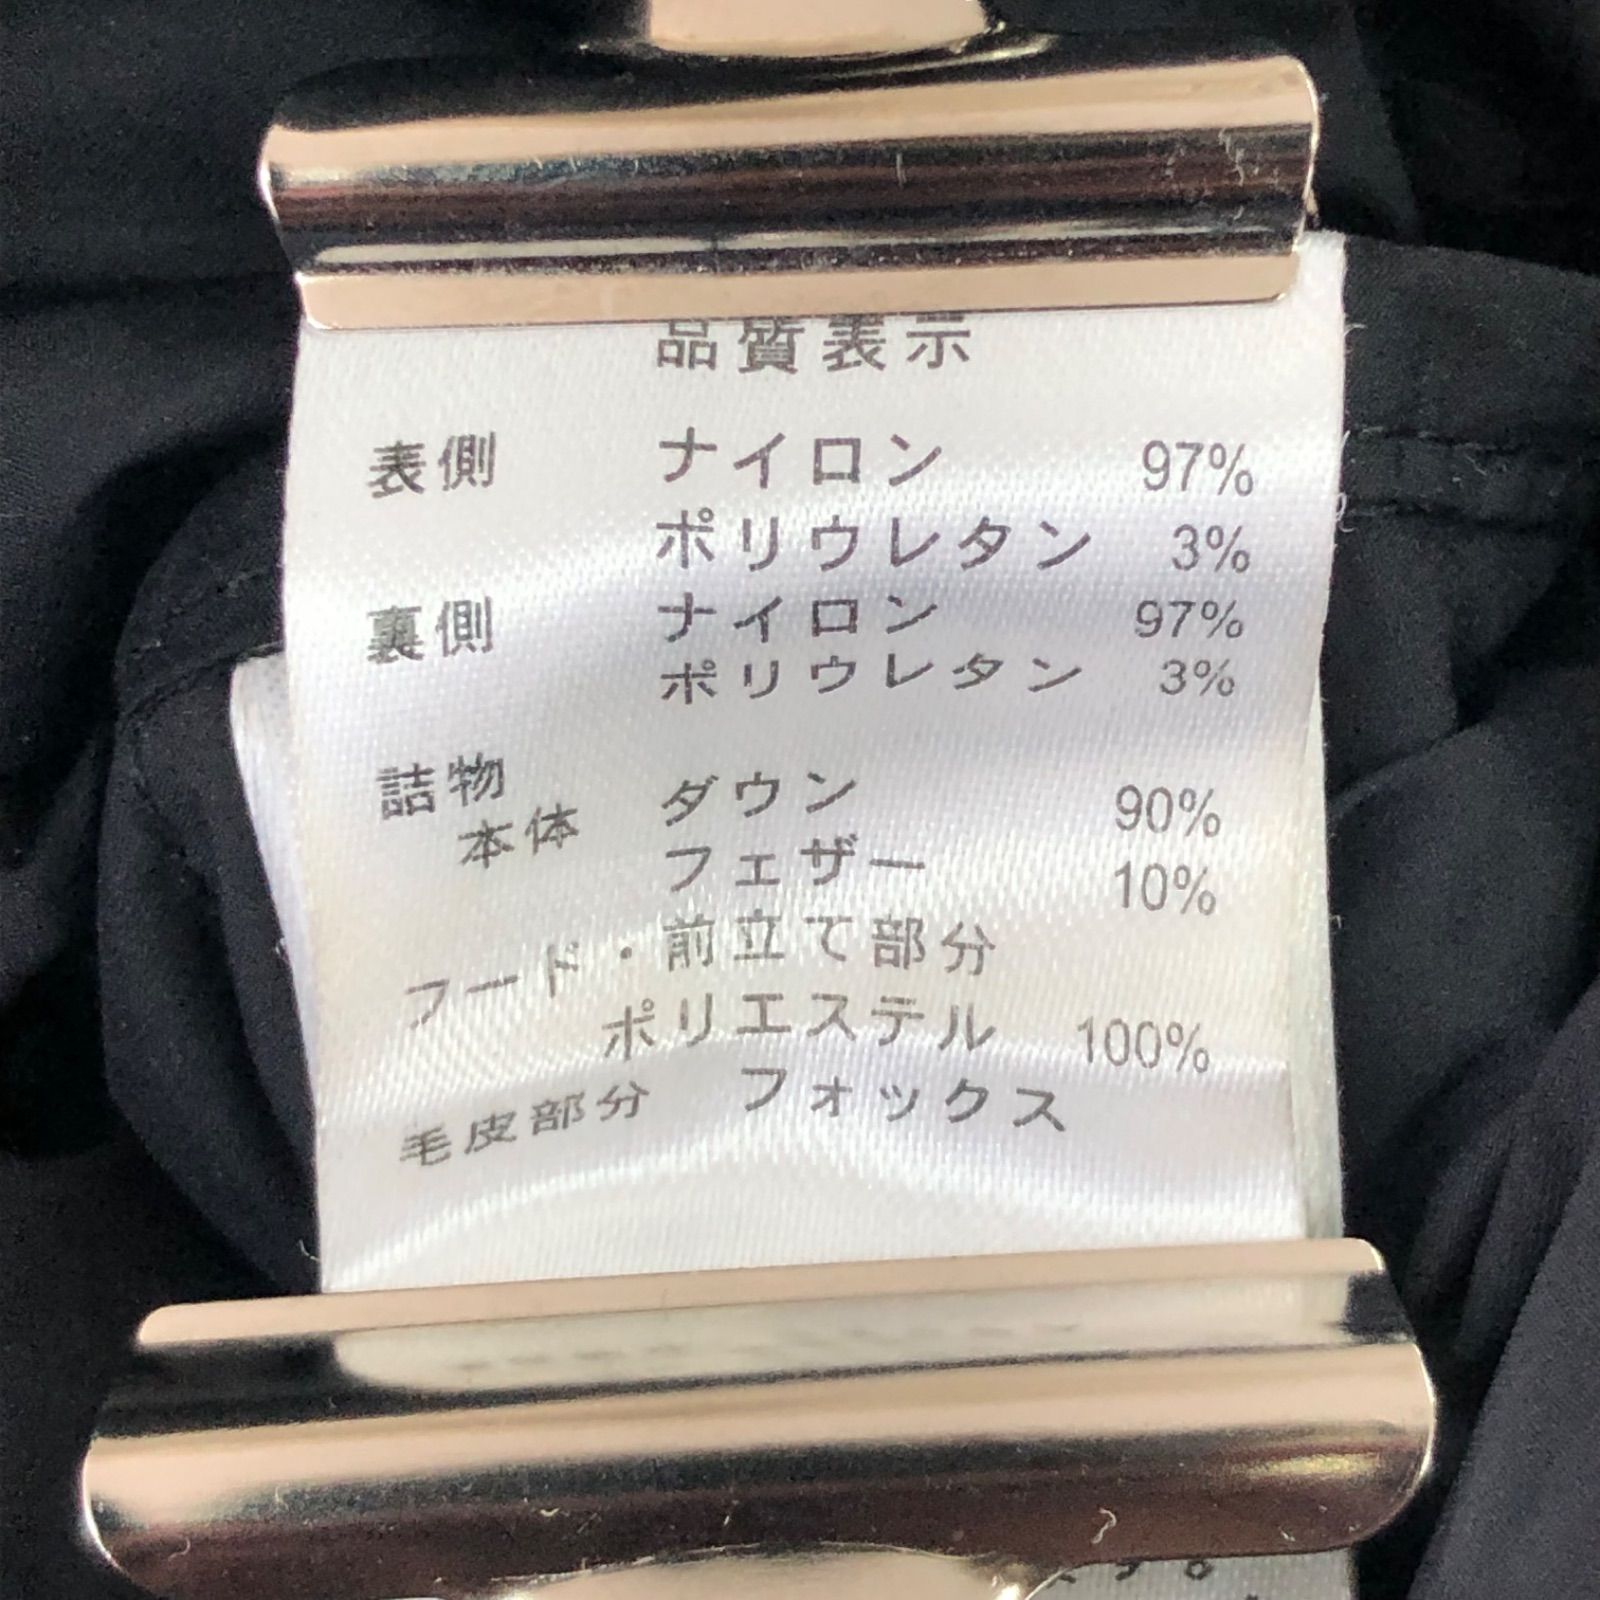 品質表示
表側 ナイロン 97%
ポリウレタン 3%
裏側 ナイロン 97%
ポリウレタン 3%
詰物
本体 ダウン 90%
フェザー 10%
フード・前立て部分
ポリエステル 100%
毛皮部分 フォックス